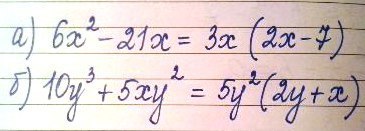 а) 6x² - 21x = 3x (2x - 7)
б) 10y³ + 5xy² = 5y² (2y + x)